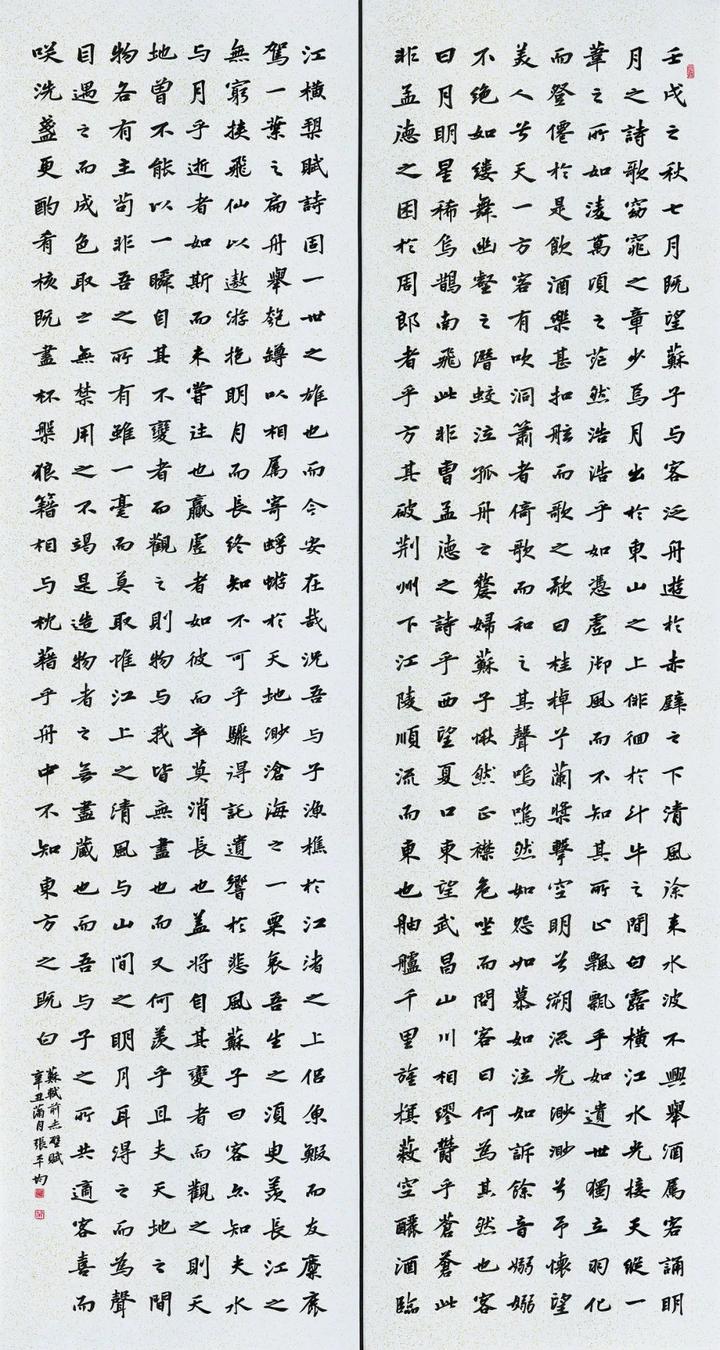 壬戌之秋七月既望蘇子与客泛舟遊於赤壁之下清風徐来水波不興舉酒属客誦明
月之詩歌窈窕之章少焉月出於東山之上徘徊於斗牛之間白露横江水光接天縱一
葦之所如淩萬頃之茫然浩浩乎如憑虛御風而不知其所止飄飄乎如遺世獨立羽化
而登僊於是飲酒樂甚扣舷而歌之歌曰桂棹兮蘭槳擊空明兮溯流光渺渺兮予懷望
美人兮天一方客有吹洞簫者倚歌而和之其聲嗚嗚然如怨如慕如泣如訴餘音嫋嫋
不绝如缕舞幽壑之潛蛟泣孤舟之嫠婦蘇子愀然正襟危坐而問客曰何為其然也客
曰月明星稀烏鵲南飛此非曹孟德之詩乎西望夏口東望武昌山川相繆鬱乎蒼蒼此
非孟德之困於周郎者乎方其破荆州下江陵順流而東也舳艫千里旌旗蔽空釃酒臨
江横槊賦詩固一世之雄也而今安在哉況吾与子漁樵於江渚之上侣魚鰕而友麋鹿
駕一葉之扁舟舉匏罇以相属寄蜉蝣於天地渺滄海之一粟哀吾生之須臾羨長江之
無窮挾飛仙以遨游抱明月而長終知不可乎驟得託遺響於悲風蘇子曰客亦知夫水
与月乎逝者如斯而未嘗往也贏虛者如彼而卒莫消長也盖將自其變者而觀之則天
地曾不能以一瞬自其不變者而觀之則物与我皆無盡也而又何羨乎且夫天地之間
物各有主茍非吾之所有雖一毫而莫取惟江上之清風与山間之明月耳得之而為聲
目遇之而成色取之無禁用之不竭是造物者之無盡藏也而吾与子之所共適客喜而
咲洗盞更酌肴核既盡杯槃狼籍相与枕藉乎舟中不知東方之既白
蘇軾前赤壁賦
辛丑滿月張平均